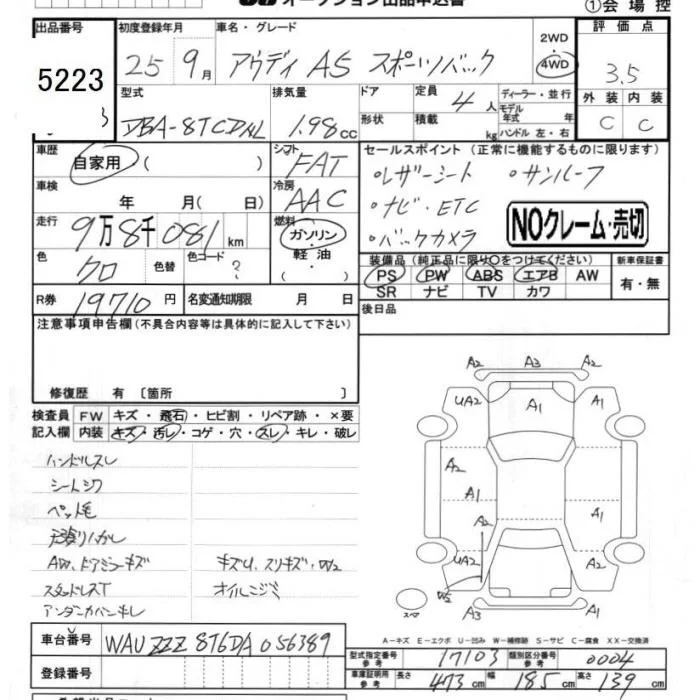 オークション出品申込書
①会場控
出品番号 5223
初度登録年月 25 9月
車名・グレード アウディ A5 スポーツバック
2WD 4WD
評価点 3.5
外装 C 内装 C
型式 DBA-8TCDNL
排気量 1.98cc
ドア
形状
定員 4人
積載 kg
ディーラー・並行
モデル年式 年式
ハンドル 左・右
車歴 自家用 ( )
シフト FAT
セールスポイント (正常に機能するものに限ります)
・レザーシート ・サンルーフ
・ナビ・ETC
・バックカメラ
NOクレーム・売切
車検 年 月( 日)
冷房 AAC
走行 9万8千081km
燃料 ガソリン・軽油・( )
色 クロ 色替
色コード ?
装備品 (純正品に限り○をつけてください)
PS PW ABS エアB AW
SR ナビ TV カワ
新車保証書 有・無
R券 19710円
名変通知期限 月 日
後日品
注意事項申告欄 (不具合内容等は具体的に記入して下さい)
修復歴 有 〔箇所 〕
検査員記入欄
FW キズ・飛石・ヒビ割・リペア跡・×要
内装 キズ・汚レ・コゲ・穴・スレ・キレ・破レ
ハンドルスレ
シートシワ
ペット毛
AW、ドアミラーキズ
スタッドレスT
アンダーカバーキレ
キズU、スリキズ・W2
オイルニジミ
A2 A3 A2
UA2 A1 A1
A2
A1 A1
A2
A1
W2
スペア A3 A2
A-キズ E-エクボ U-凹み W-補修跡 S-サビ C-腐食 XX-交換済
車台番号 WAUZZZ8T6DA056389
登録番号
型式指定番号 参考 17103
類別区分番号 参考 0004
車庫証明用 参考 長さ 473cm 幅 185cm 高さ 139cm